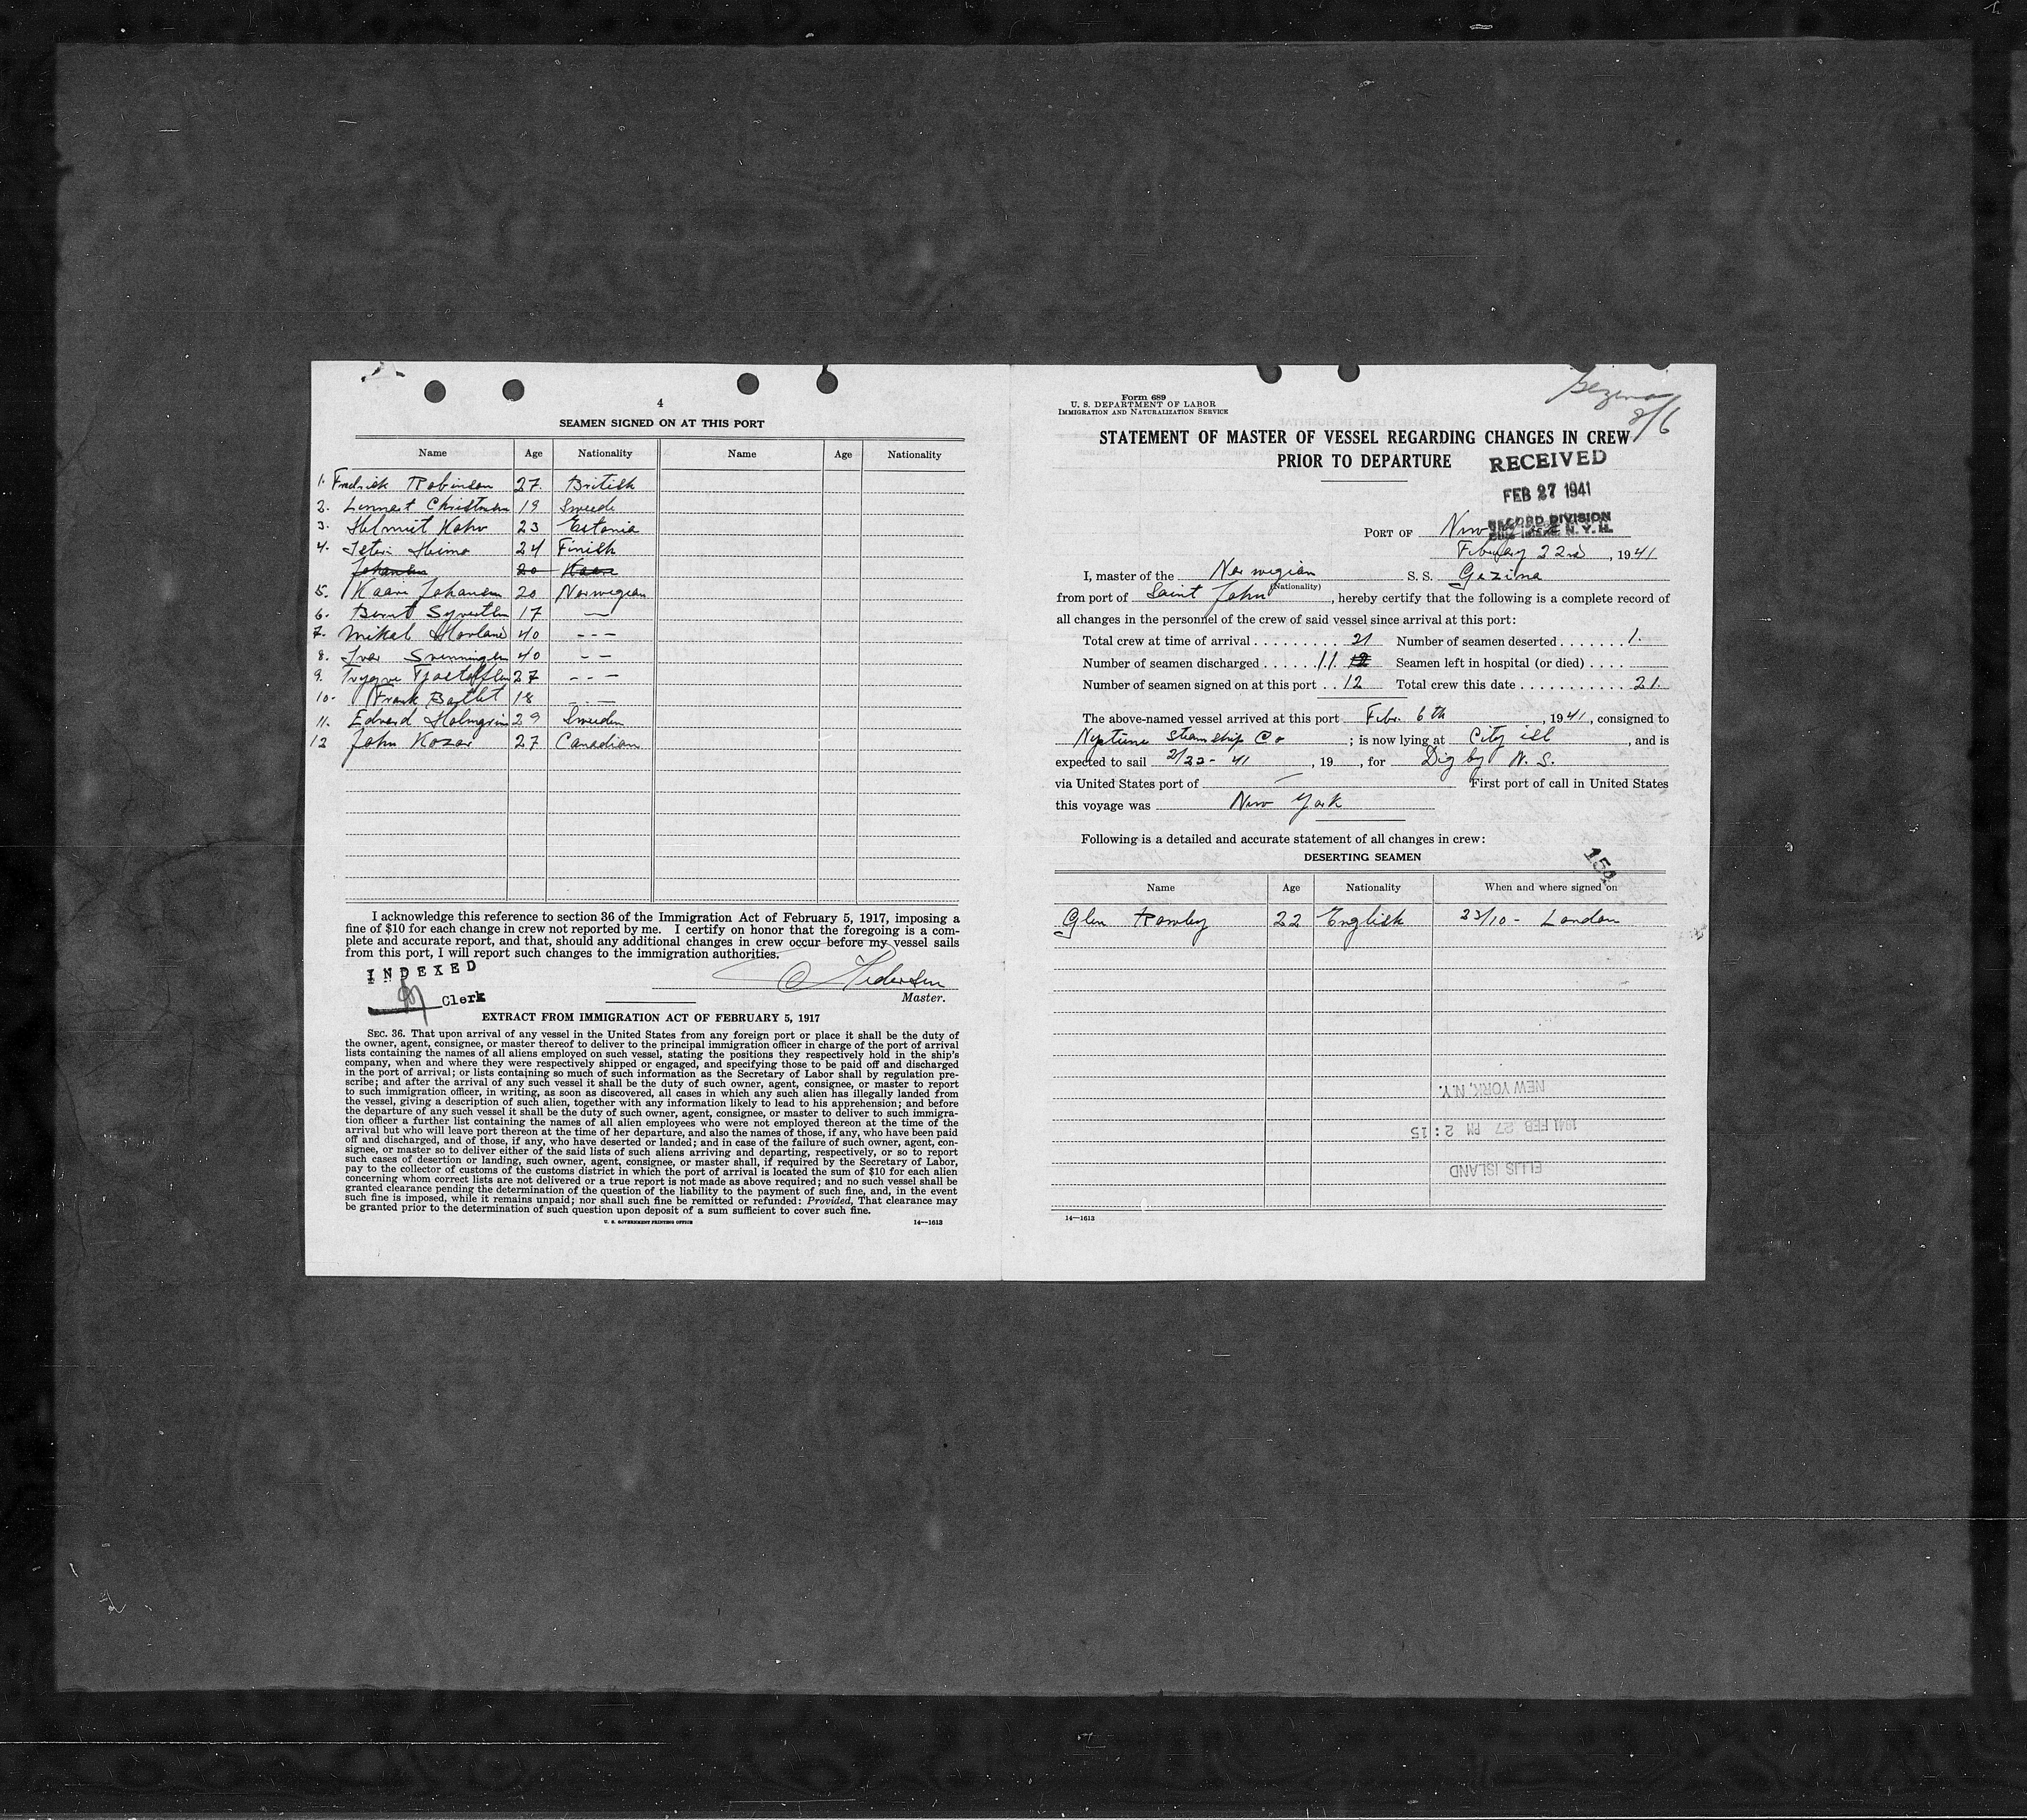 4
SEAMEN SIGNED ON AT THIS PORT
Name Age Nationality Name Age Nationality
1. Fredrick Robinson 27. British
2. Lennart 19 Swede
3. Helmut 23 Estonia
4. Heimo 24 Finish
Johansen 20 Kaare
5. Kaare Johansen 20 Norwegian
6. Bernt 17 —
7. Mikal Hovland 40 - - -
8. Ivar Svenningsen 40 - -
9. Trygve 27 - - -
10- Frank Bartlet 18 - . —
11. Edvard Holmgren 29 Sweden
12 John Kozar 27 Canadian
I acknowledge this reference to section 36 of the Immigration Act of February 5, 1917, imposing a
fine of $10 for each change in crew not reported by me. I certify on honor that the foregoing is a com-
plete and accurate report, and that, should any additional changes in crew occur before my vessel sails
from this port, I will report such changes to the immigration authorities.
INDEXED
Clerk
Pedersen
Master.
EXTRACT FROM IMMIGRATION ACT OF FEBRUARY 5, 1917
SEC. 36. That upon arrival of any vessel in the United States from any foreign port or place it shall be the duty of
the owner, agent, consignee, or master thereof to deliver to the principal immigration officer in charge of the port of arrival
lists containing the names of all aliens employed on such vessel, stating the positions they respectively hold in the ship's
company, when and where they were respectively shipped or engaged, and specifying those to be paid off and discharged
in the port of arrival; or lists containing so much of such information as the Secretary of Labor shall by regulation pre-
scribe; and after the arrival of any such vessel it shall be the duty of such owner, agent, consignee, or master to report
to such immigration officer, in writing, as soon as discovered, all cases in which any such alien has illegally landed from
the vessel, giving a description of such alien, together with any information likely to lead to his apprehension; and before
the departure of any such vessel it shall be the duty of such owner, agent, consignee, or master to deliver to such immigra-
tion officer a further list containing the names of all alien employees who were not employed thereon at the time of the
arrival but who will leave port thereon at the time of her departure, and also the names of those, if any, who have been paid
off and discharged, and of those, if any, who have deserted or landed; and in case of the failure of such owner, agent, con-
signee, or master so to deliver either of the said lists of such aliens arriving and departing, respectively, or so to report
such cases of desertion or landing, such owner, agent, consignee, or master shall, if required by the Secretary of Labor,
pay to the collector of customs of the customs district in which the port of arrival is located the sum of $10 for each alien
concerning whom correct lists are not delivered or a true report is not made as above required; and no such vessel shall be
granted clearance pending the determination of the question of the liability to the payment of such fine, and, in the event
such fine is imposed, while it remains unpaid; nor shall such fine be remitted or refunded: Provided, That clearance may
be granted prior to the determination of such question upon deposit of a sum sufficient to cover such fine.
U. S. GOVERNMENT PRINTING OFFICE 14—1613
Gezina
8/6
Form 689
U. S. DEPARTMENT OF LABOR
IMMIGRATION AND NATURALIZATION SERVICE
STATEMENT OF MASTER OF VESSEL REGARDING CHANGES IN CREW
PRIOR TO DEPARTURE
RECEIVED
FEB 27 1941
RECORD DIVISION
N.Y.H.
PORT OF New
February 22nd, 1941
I, master of the Norwegian S. S. Gezina
(Nationality)
from port of Saint John, hereby certify that the following is a complete record of
all changes in the personnel of the crew of said vessel since arrival at this port:
Total crew at time of arrival 21 Number of seamen deserted 1.
Number of seamen discharged 11 12 Seamen left in hospital (or died)
Number of seamen signed on at this port 12 Total crew this date 21.
The above-named vessel arrived at this port Febr. 6th, 1941, consigned to
Neptune Steamship Co; is now lying at City isl, and is
expected to sail 2/22- 41, 19, for Digby N. S.
via United States port of — First port of call in United States
this voyage was New York
Following is a detailed and accurate statement of all changes in crew:
DESERTING SEAMEN
154
Name Age Nationality When and where signed on
Glen Rowley 22 English 23/10 - London
NEW YORK, N.Y.
1941 FEB 27 PM 2:15
ELLIS ISLAND
14—1613